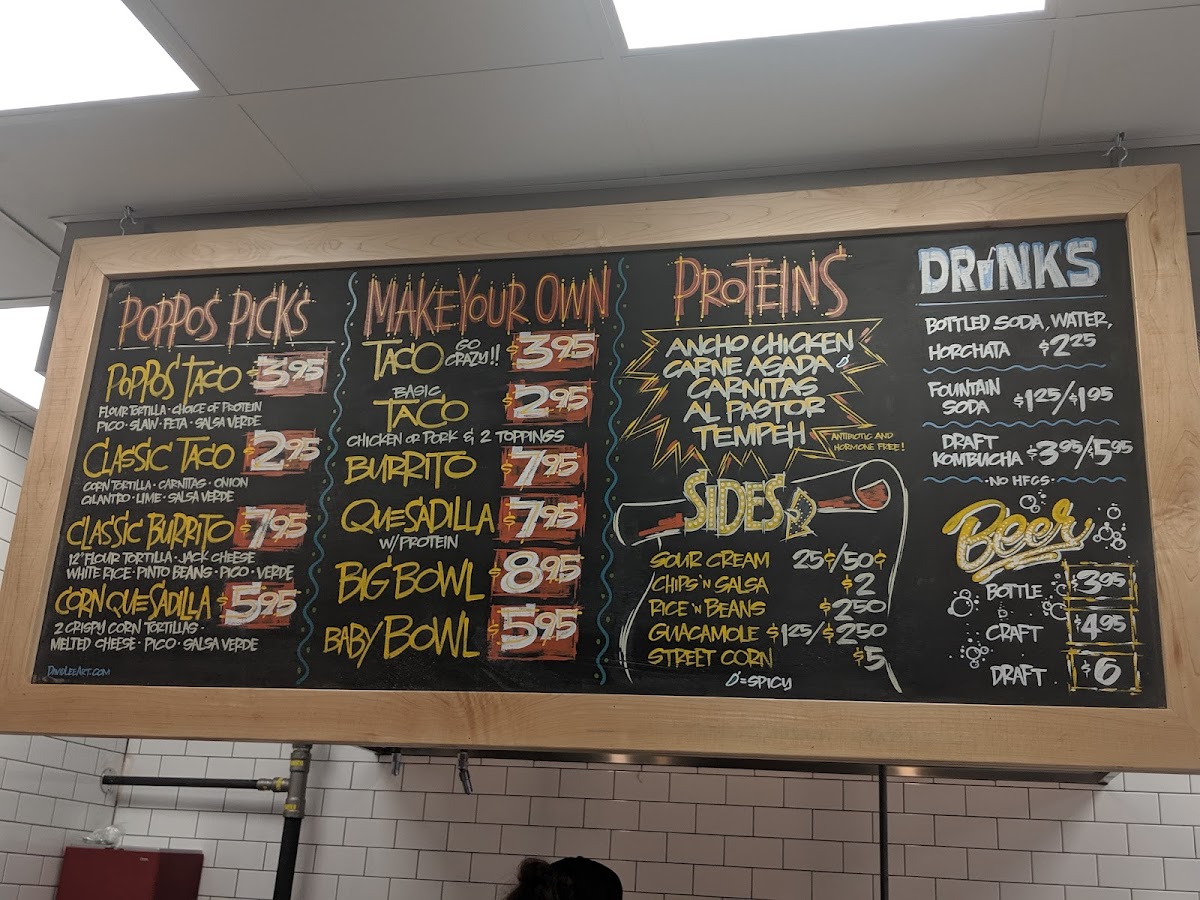 POPPOS PICKS
POPPOS TACO $3.95
FLOUR TORTILLA · CHOICE OF PROTEIN
PICO · SLAW · FETA · SALSA VERDE
CLASSIC TACO $2.95
CORN TORTILLA · CARNITAS · ONION
CILANTRO · LIME · SALSA VERDE
CLASSIC BURRITO $7.95
12" FLOUR TORTILLA · JACK CHEESE
WHITE RICE · PINTO BEANS · PICO · VERDE
CORN QUESADILLA $5.95
2 CRISPY CORN TORTILLAS ·
MELTED CHEESE · PICO · SALSA VERDE
DAVIDLEEART.COM
MAKE YOUR OWN
TACO GO CRAZY!! $3.95
BASIC
TACO $2.95
CHICKEN OR PORK & 2 TOPPINGS
BURRITO $7.95
QUESADILLA $7.95
W/PROTEIN
BIG BOWL $8.95
BABY BOWL $5.95
PROTEINS
ANCHO CHICKEN
CARNE ASADA
CARNITAS
AL PASTOR
TEMPEH
ANTIBIOTIC AND
HORMONE FREE!
SIDES
SOUR CREAM 25¢/50¢
CHIPS 'N SALSA $2
RICE 'N BEANS $2.50
GUACAMOLE $1.25/$2.50
STREET CORN $5
=SPICY
DRINKS
BOTTLED SODA, WATER,
HORCHATA $2.25
FOUNTAIN
SODA $1.25/$1.95
DRAFT
KOMBUCHA $3.95/$5.95
· NO HFCS ·
Beer
BOTTLE $3.95
CRAFT $4.95
DRAFT $6